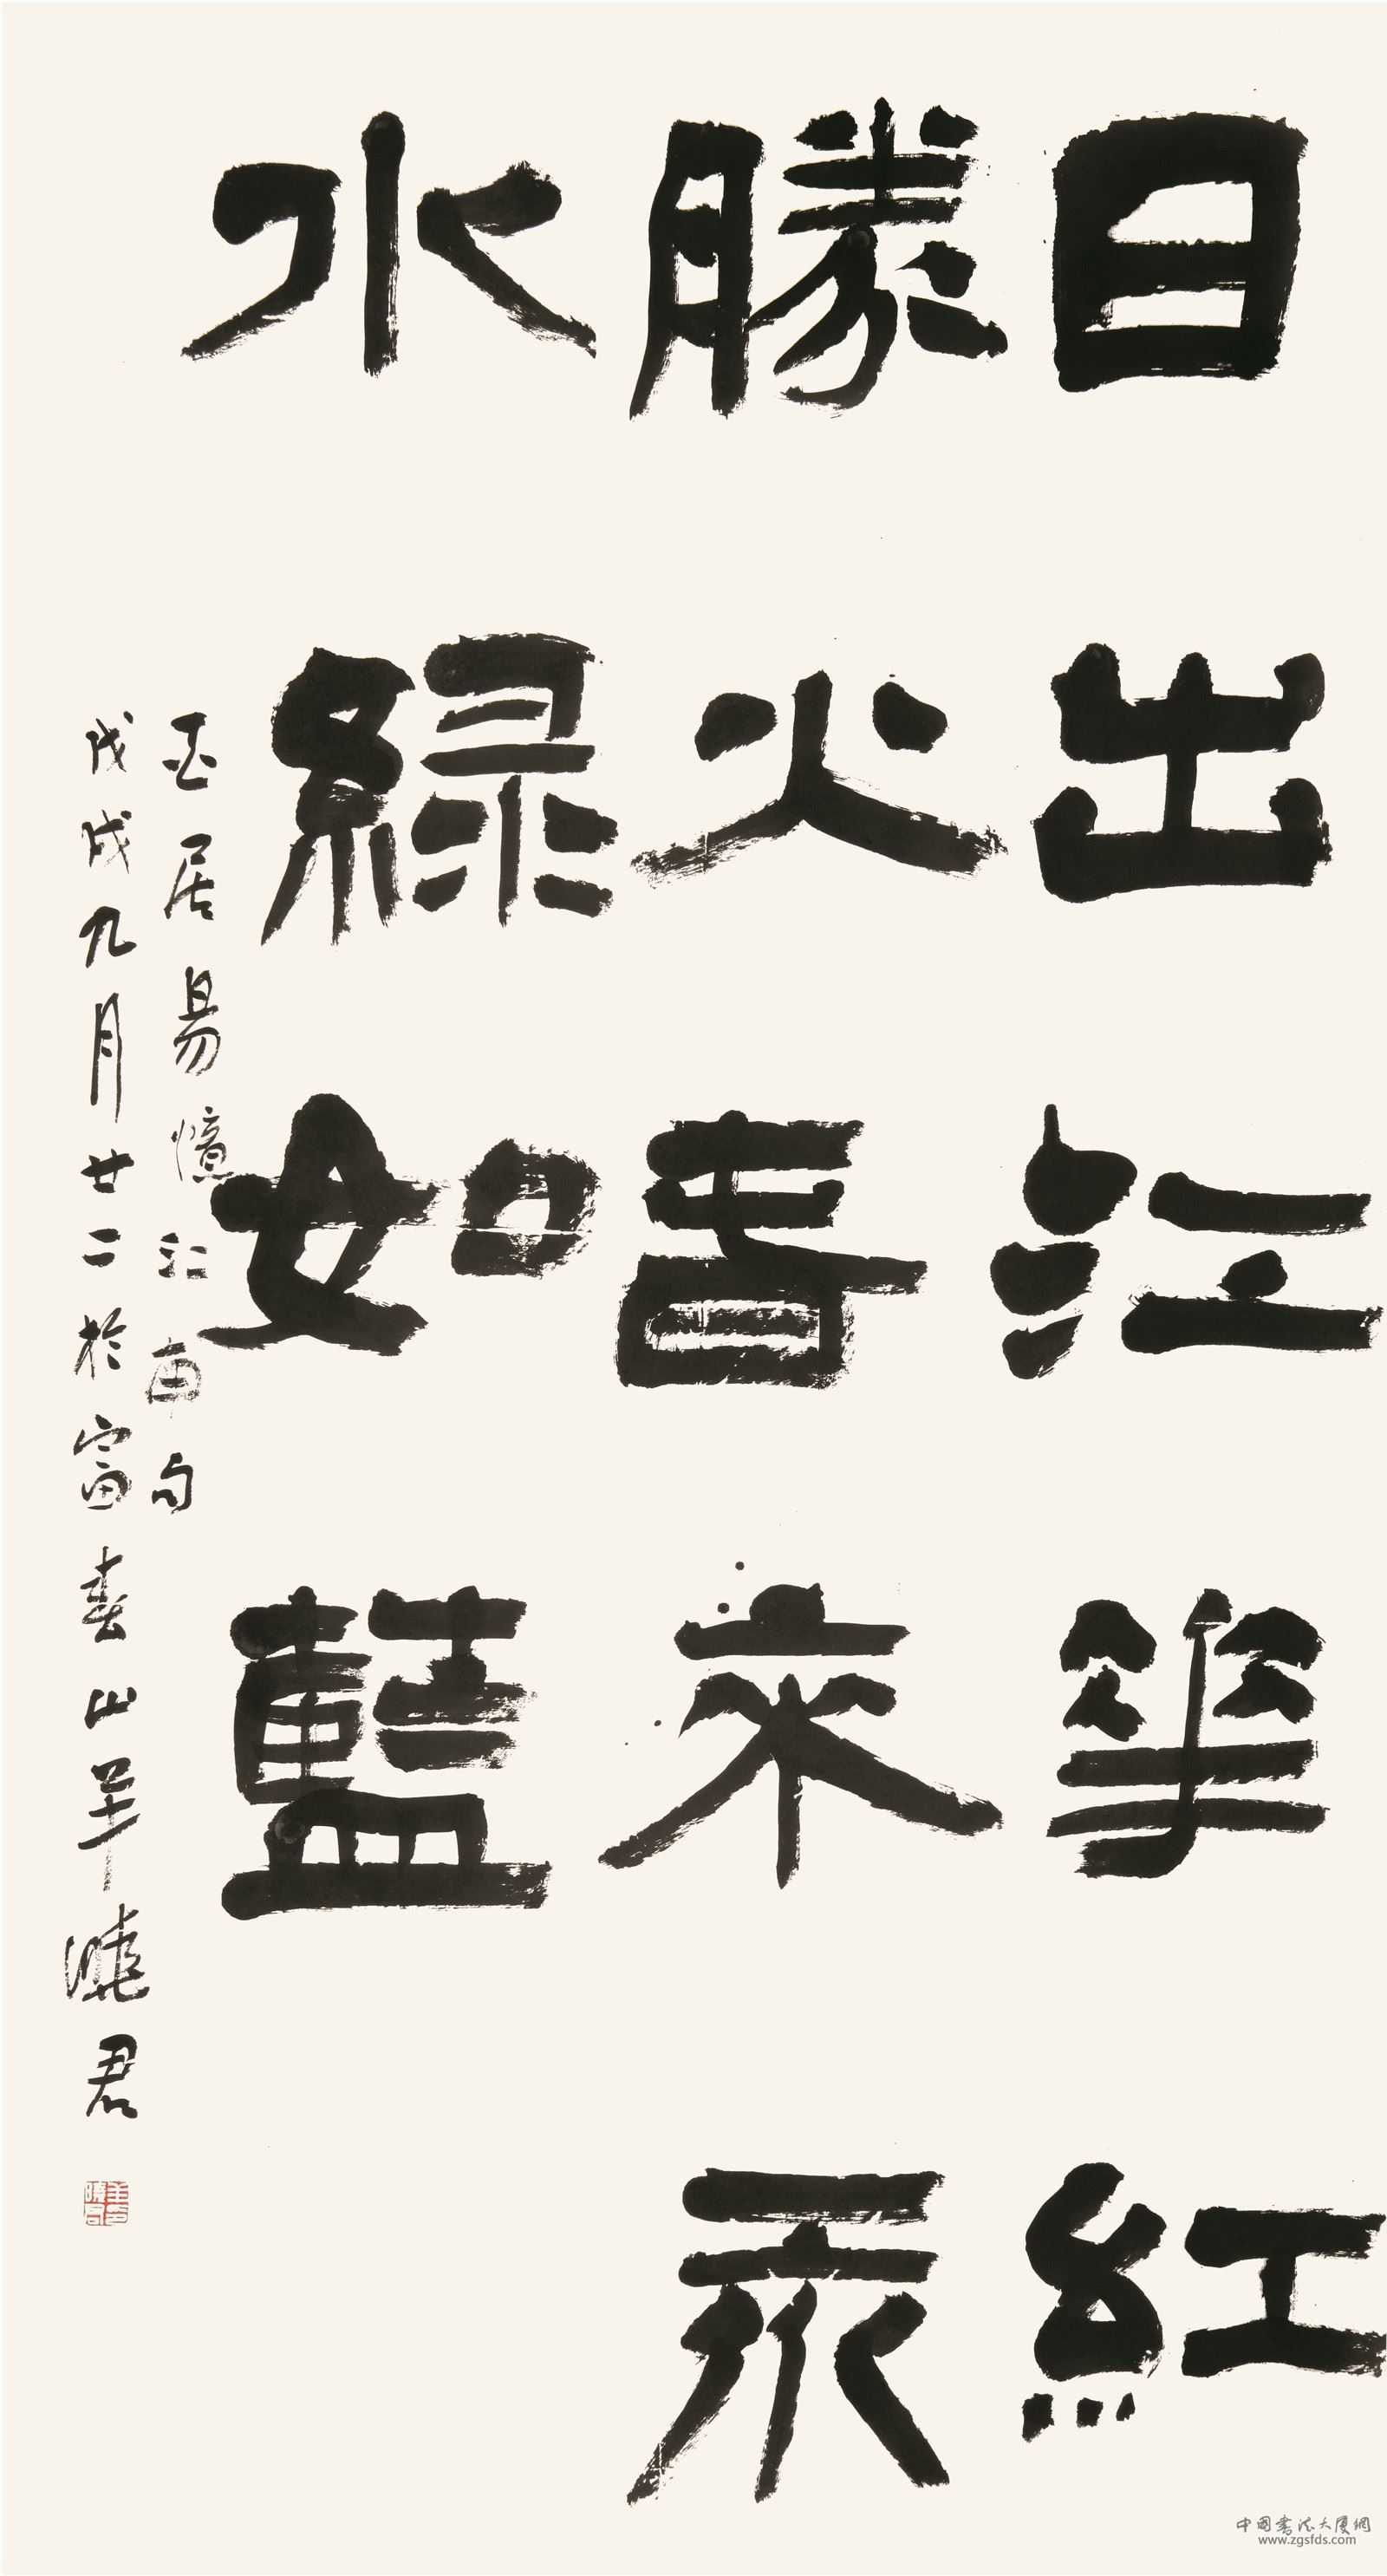 日出江華紅
勝火春來
水綠如藍
白居易憶江南句
戊戌九月廿二於富春山羊曉君
中國書法大廈網
www.zgsfds.com